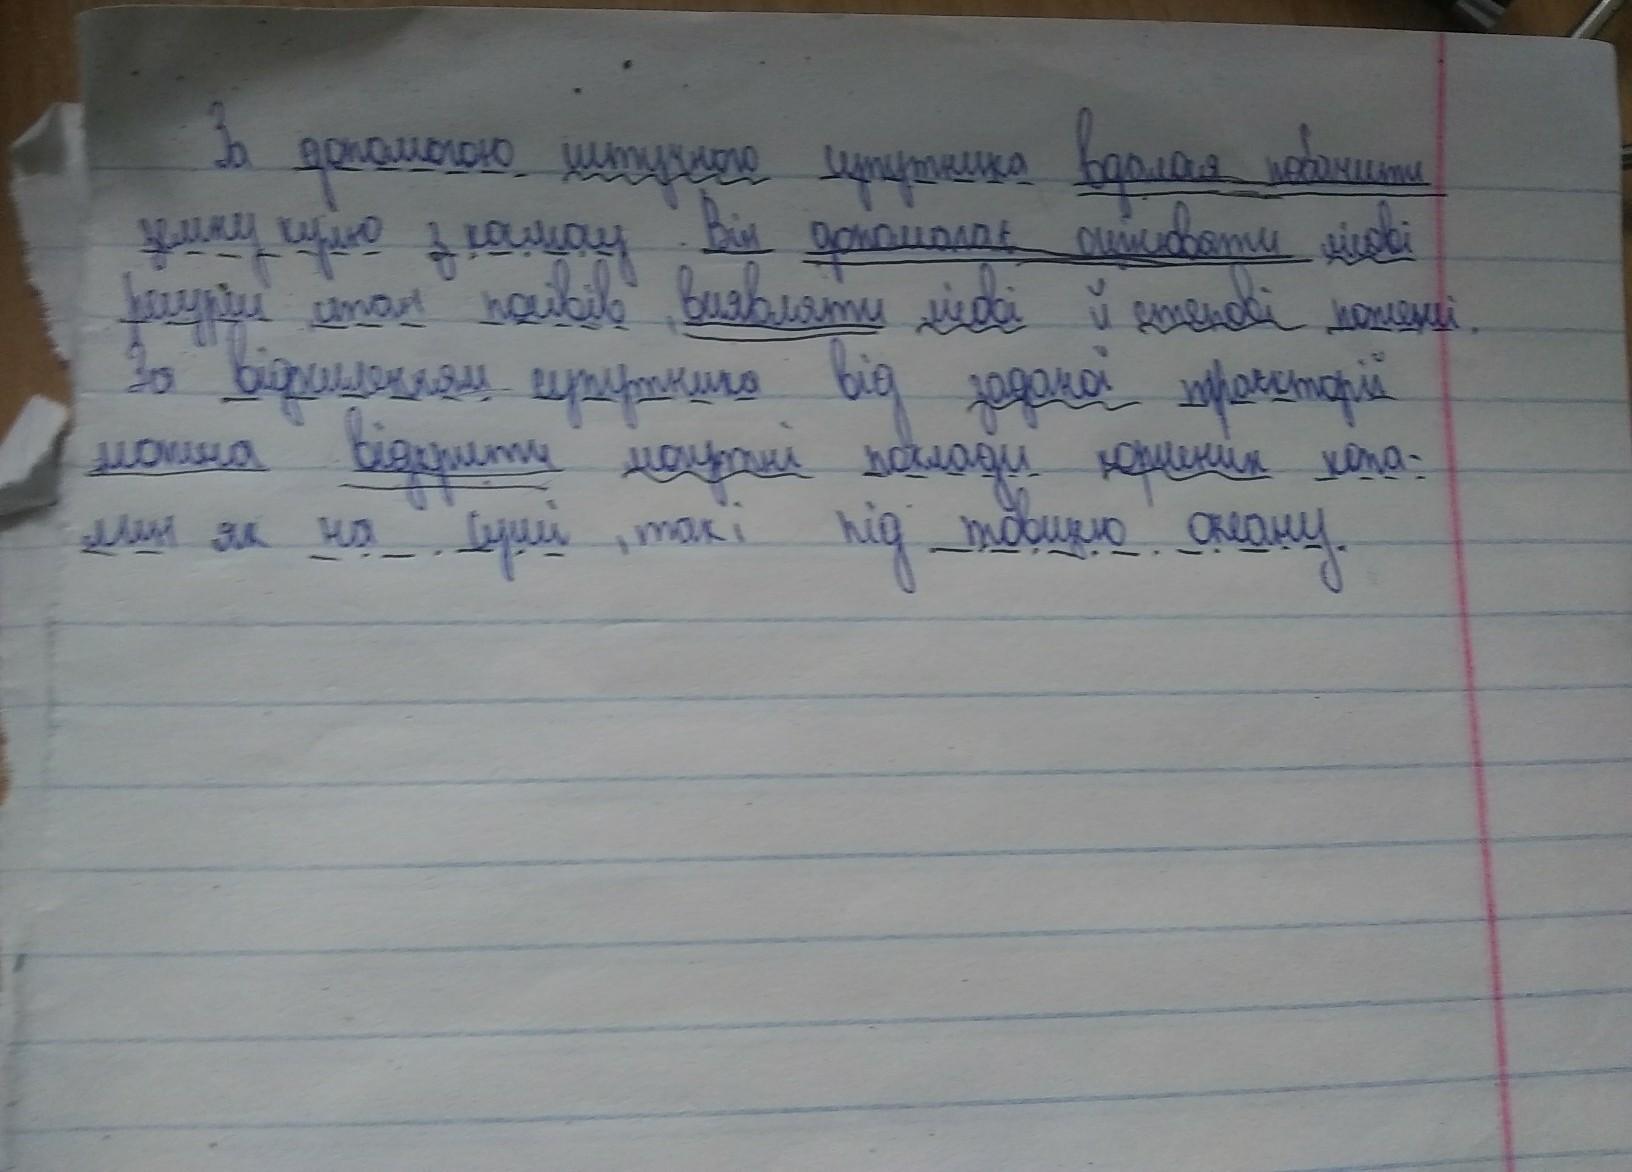 За допомогою штучного супутника вдалая побачити
земну кулю з космосу. Він допомагає оцінювати лісові
ресурси стан посівів, виявляти лісові й степові пожежі.
За відхиленням супутника від заданої траєкторії
можна відкрити могутні поклади корисних копа-
лин як на суші, так і під товщею океану.